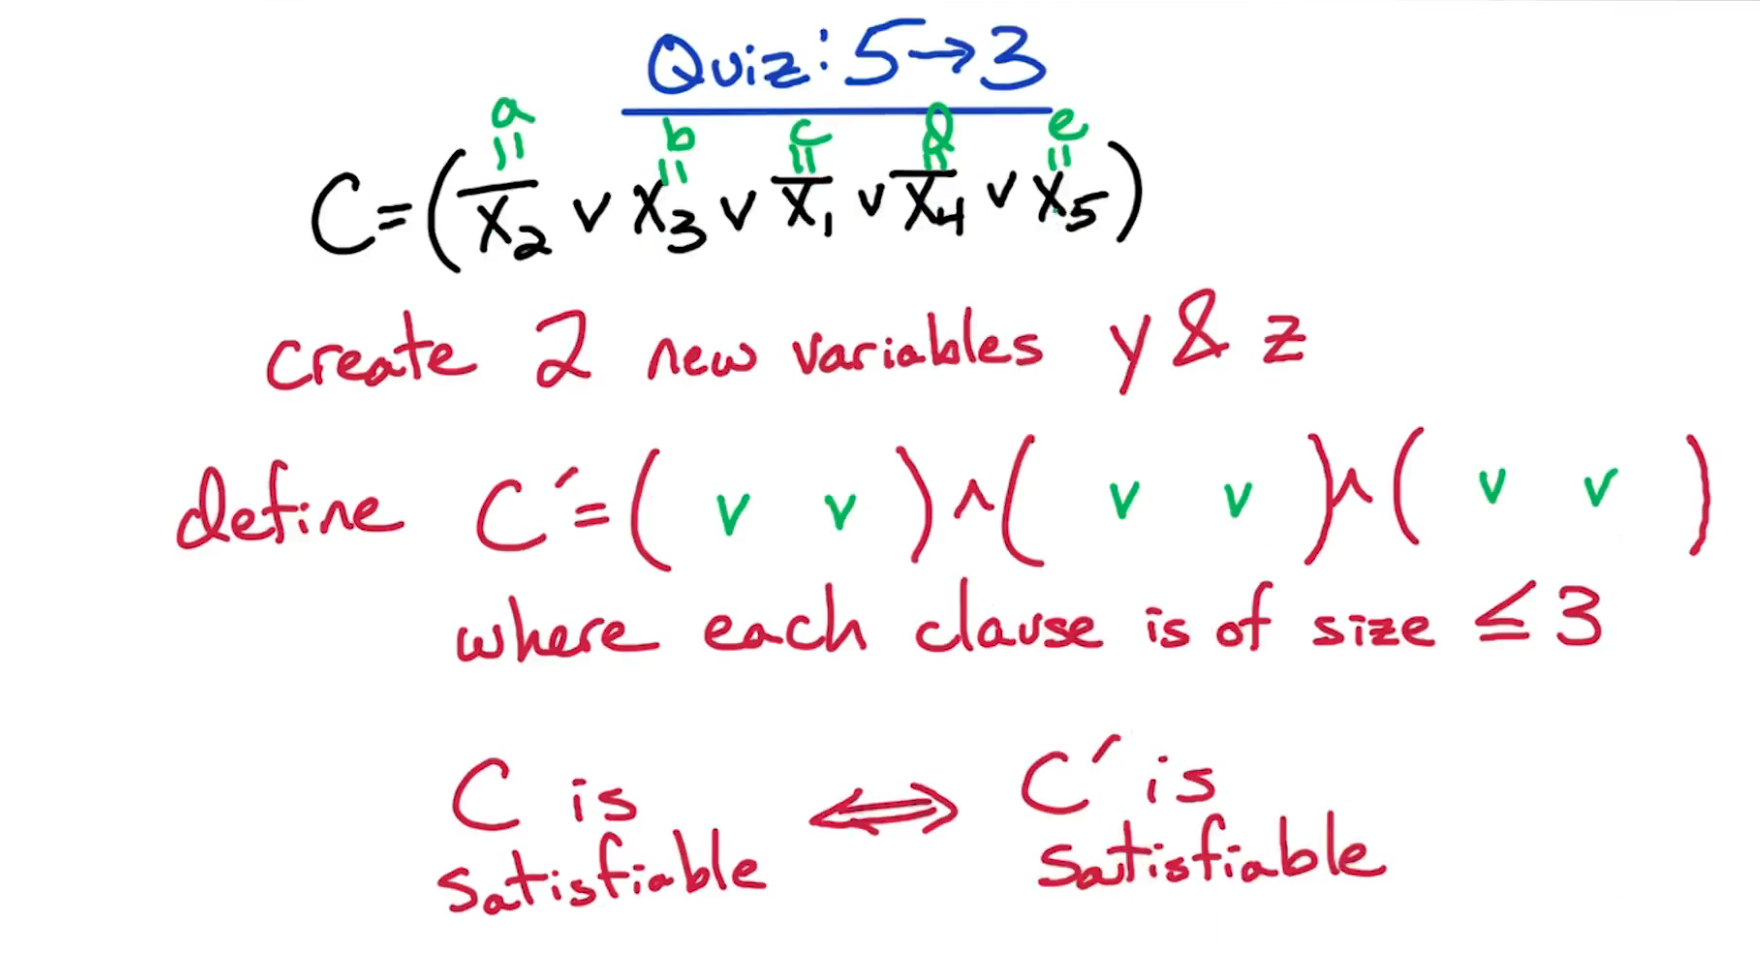 Quiz: 5→3
a b c d e
|| || || || ||
C=(x̅₂ ∨ x₃ ∨ x̅₁ ∨ x̅₄ ∨ x₅)
create 2 new variables y & z
define C′=( ∨ ∨ )∧( ∨ ∨ )∧( ∨ ∨ )
where each clause is of size ≤3
C is ⟺ C′ is
satisfiable satisfiable